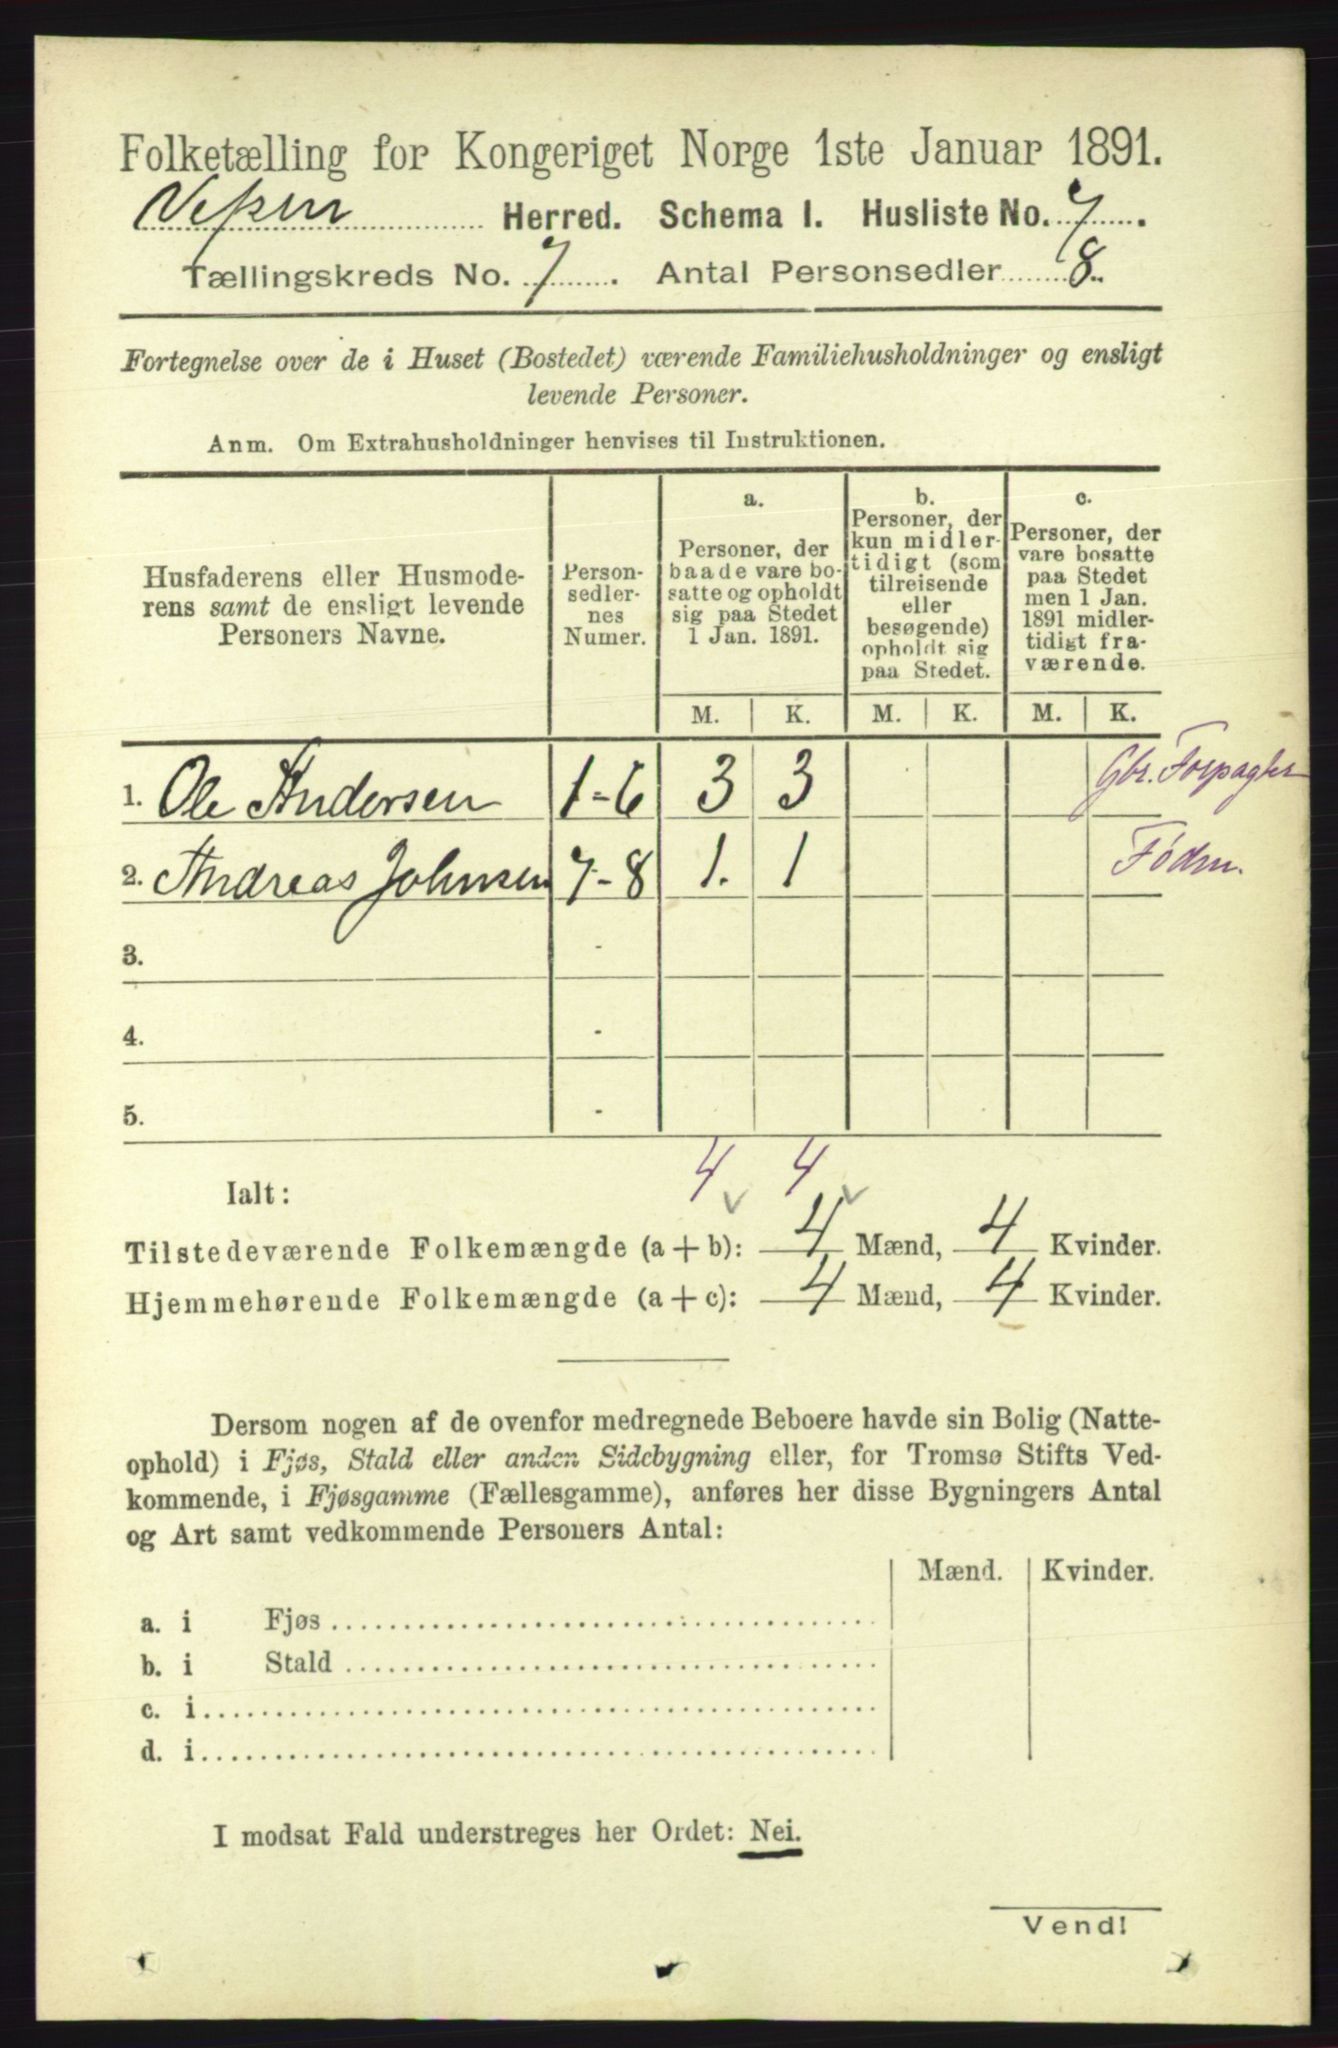 Folketælling for Kongeriget Norge 1ste Januar 1891.
Herred. Schema 1. Husliste No. 7.
Tællingskreds No. 7. Antal Personsedler 8.
Fortegnelse over de i Huset (Bostedet) værende Familiehusholdninger og ensligt
levende Personer.
Anm. Om Extrahusholdninger henvises til Instruktionen.
Husfaderens eller Husmode-
rens samt de ensligt levende
Personers Navne.
Person-
sedler-
nes
Numer.
a.
Personer, der
baade vare bo-
satte og opholdt
sig paa Stedet
1 Jan. 1891.
b.
Personer, der
kun midler-
tidigt (som
tilreisende
eller
besøgende)
opholdt sig
paa Stedet.
c.
Personer, der
vare bosatte
paa Stedet
men 1 Jan.
1891 midler-
tidigt fra-
værende.
M. K. M. K. M. K.
1. Ole Andersen 1-6 3 3 Gbr. Forpagter
2. Andreas Johnsen 7-8 1. 1 Føder.
3. -
4. -
5. -
4 4
Ialt:
Tilstedeværende Folkemængde (a + b): 4 Mænd, 4 Kvinder.
Hjemmehørende Folkemængde (a + c): 4 Mænd, 4 Kvinder.
Dersom nogen af de ovenfor medregnede Beboere havde sin Bolig (Natte-
ophold) i Fjøs, Stald eller anden Sidebygning eller, for Tromsø Stifts Ved-
kommende, i Fjøsgamme (Fællesgamme), anføres her disse Bygningers Antal
og Art samt vedkommende Personers Antal:
Mænd. Kvinder.
a. i Fjøs
b. i Stald
c. i
d. i
I modsat Fald understreges her Ordet: Nei.
Vend!